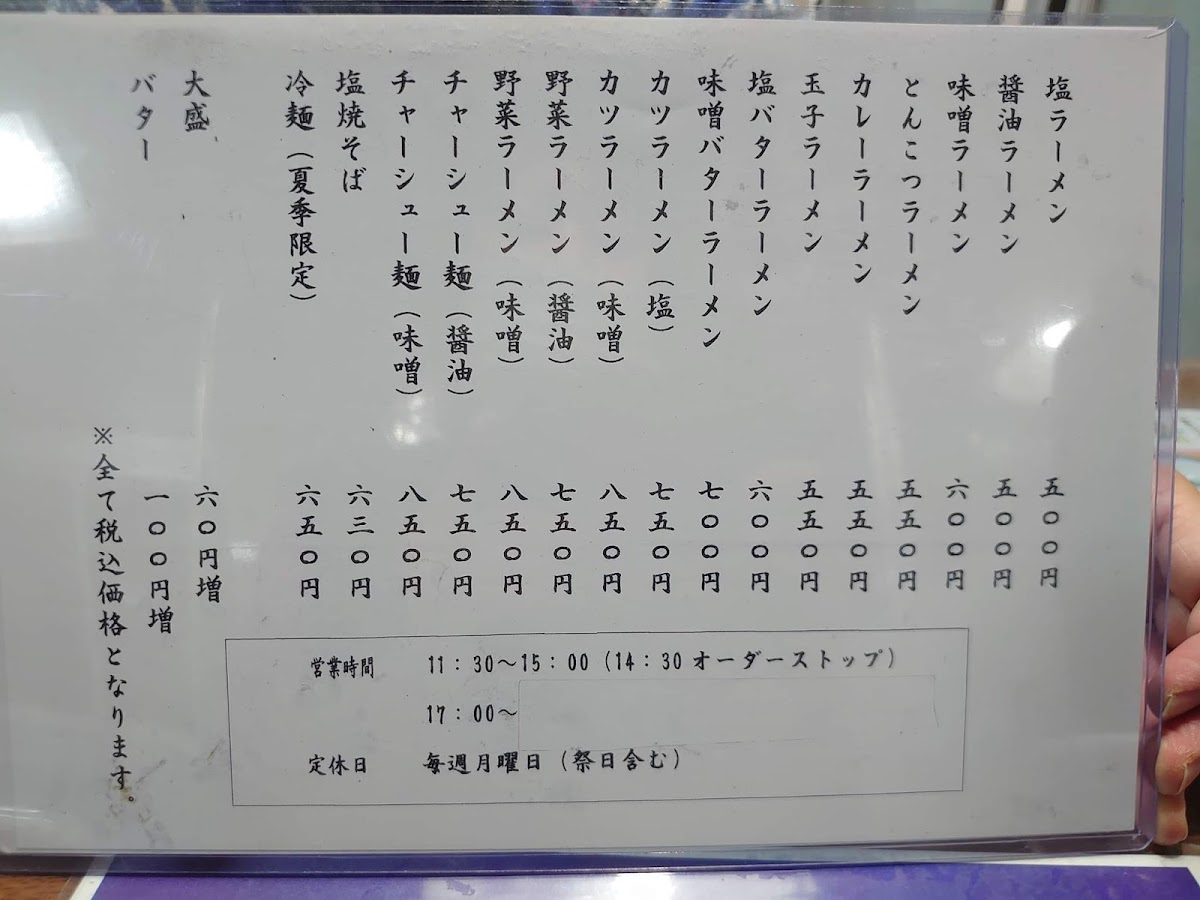 塩ラーメン 五〇〇円
醤油ラーメン 五〇〇円
味噌ラーメン 六〇〇円
とんこつラーメン 五五〇円
カレーラーメン 五五〇円
玉子ラーメン 五五〇円
塩バターラーメン 六〇〇円
味噌バターラーメン 七〇〇円
カツラーメン（塩） 七五〇円
カツラーメン（味噌） 八五〇円
野菜ラーメン（醤油） 七五〇円
野菜ラーメン（味噌） 八五〇円
チャーシュー麺（醤油） 七五〇円
チャーシュー麺（味噌） 八五〇円
塩焼そば 六三〇円
冷麺（夏季限定） 六五〇円
大盛 六〇円増
バター 一〇〇円増
※全て税込価格となります。
営業時間 11：30～15：00（14：30オーダーストップ）
17：00～
定休日 毎週月曜日（祭日含む）